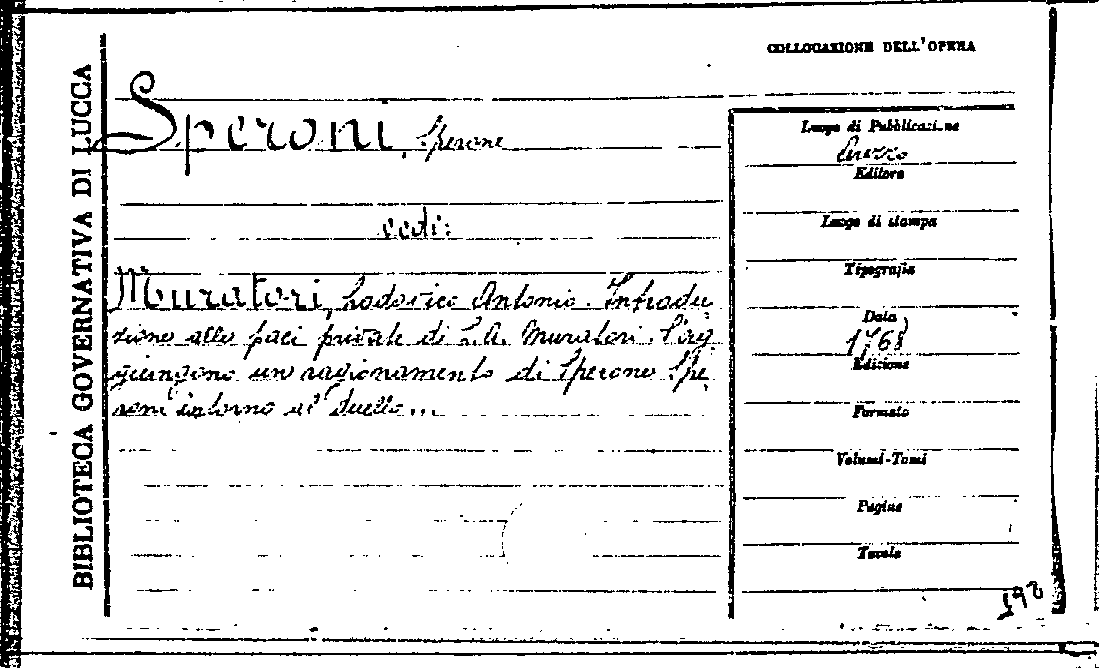 COLLOCAZIONE DELL'OPERA
BIBLIOTECA GOVERNATIVA DI LUCCA
Speroni, Sperone
vedi:
Muratori, Lodovico Antonio. Introdu
zione alle paci private di L.A. Muratori. S'ag
giungono un ragionamento di Sperone Spe
roni intorno al duello...
Luogo di Pubblicazione
Lucca
Editore
Luogo di stampa
Tipografia
Data
1768
Edizione
Formato
Volumi-Tomi
Pagine
Tavole
598